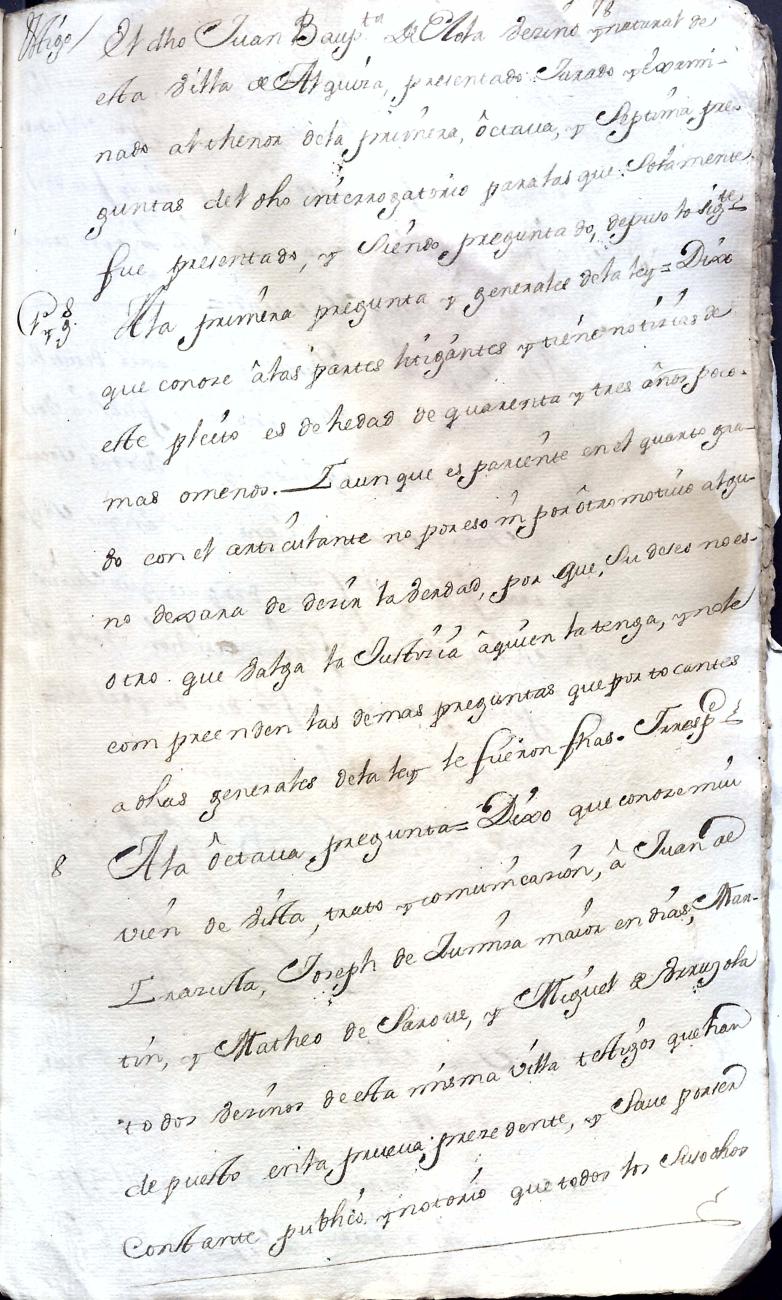 78
Ttigo / El dho Juan Baupta De Elola vezino y natural de
esta Villa de Alquiza, presentado Jurado y exami-
nado al thenor dela primera, ôctaua, y septima pre-
guntas del dho interrogatorio para las que solamente
fue presentado, y siendo preguntado, depuso lo sigte
Pr y 8 9. Ala primera pregunta y generales dela ley = Dixo
que conoze â las partes litigantes y tiene notizias de
este pleito es de hedad de quarenta y tres años poco
mas omenos. I aun que es pariente en el quarto gra-
do con el articulante no por eso ni por ôtro motiuo algu-
no dexara de dezir la verdad, por que, su deseo no es
otro que valga la Justizia â quien la tenga, y nole
compreenden las demas preguntas que por tocantes
a dhas generales dela ley le fueron fhas. I respde
8 Ala ôctaua pregunta = Dixo que conoze mui
vien de vista, trato y comunicazion, â Juan de
Irazusta, Joseph de Iunsra maior en dias, Mar-
tin, y Matheo de Saroue, y Miguel de Arruzola
todos vezinos de esta misma villa testigos que han
depuesto en la prueua prezedente, y saue por ser
Constante publico y notorio que todos los susodhos